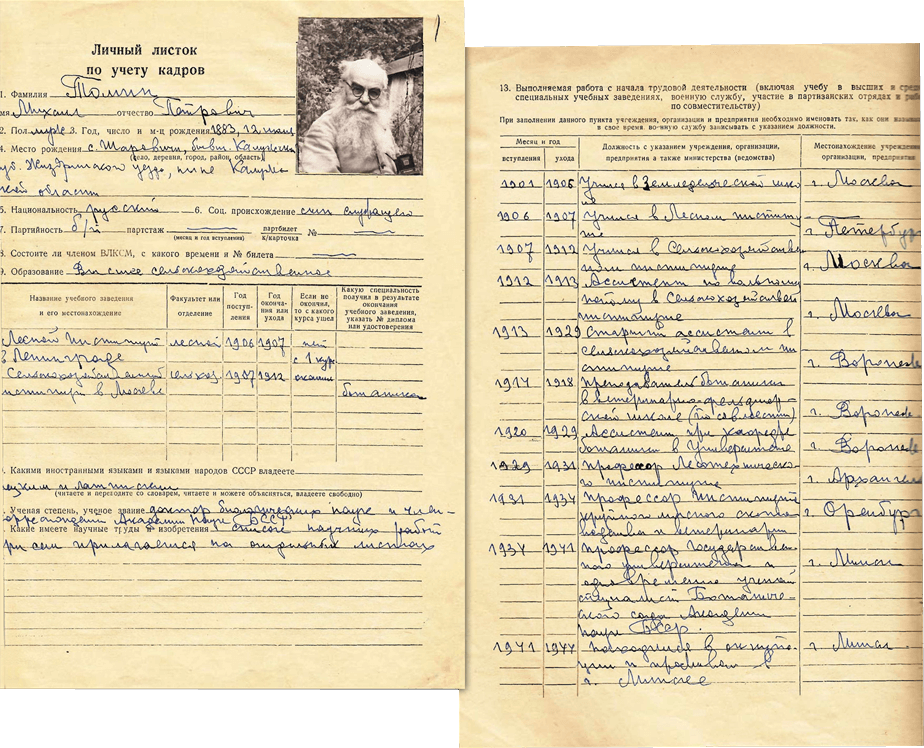 Личный листок
по учету кадров
1. Фамилия Томин
имя Михаил отчество Петрович
2. Пол муж. 3. Год, число и м-ц рождения 1883, 12 июня
4. Место рождения с. Шаровичи, бывш. Калужской
губ. Жиздринского уезда, ныне Калуж-
(село, деревня, город, район, область)
ской области
5. Национальность русский 6. Соц. происхождение сын служащего
7. Партийность б/п партстаж партбилет № 
(месяц и год вступления) к/карточка
8. Состоите ли членом ВЛКСМ, с какого времени и № билета
9. Образование Высшее сельскохозяйственное
Название учебного заведения и его местонахождение
Факультет или отделение
Год поступления
Год окончания или ухода
Если не окончил, то с какого курса ушел
Какую специальность получил в результате окончания учебного заведения, указать № диплома или удостоверения
Лесной Институт лесной 1906 1907 нет
в Ленинграде с 1 кур.
Сельскохозяйственный сельхоз. 1907 1912 окончил
институт в Москве ботаника
. Какими иностранными языками и языками народов СССР владеете
и латинским
(читаете и переводите со словарем, читаете и можете объясняться, владеете свободно)
. Ученая степень, ученое звание доктор биологических наук и член-
корреспондент Академии Наук БССР
. Какие имеете научные труды и изобретения список научных работ
при сем прилагается на отдельных листах
13. Выполняемая работа с начала трудовой деятельности (включая учебу в высших и сред
специальных учебных заведениях, военную службу, участие в партизанских отрядах и раб
по совместительству)
При заполнении данного пункта учреждения, организации и предприятия необходимо именовать так, как они назыв
в свое время, военную службу записывать с указанием должности.
Месяц и год
вступления ухода
Должность с указанием учреждения, организации, предприятия а также министерства (ведомства)
Местонахождение учреж
организации, предприят
1901 1905 Учился в Земледельческой шко- г. Москва
ле
1906 1907 Учился в Лесном институ-
те г. Петербур
1907 1912 Учился в Сельскохозяйствен-
ном институте г. Москва
1912 1913 Ассистент по вольному
найму в Сельскохозяйствен.
институте г. Москва
1913 1929 Старший ассистент в
сельскохозяйственном ин-
ституте г. Воронеж
1917 1918 Преподаватель ботаники
в ветеринарно-фельдшер-
ской школе (по совмест.) г. Воронеж
1920 1929 Ассистент при кафедре
ботаники в Университете г. Воронеж
1929 1931 Профессор Лесотехническо-
го института г. Архангел
1931 1934 Профессор Института
крупного мясного ското- г. Оренбург
водства и ветеринарии
1934 1941 Профессор Государствен-
ного университета и г. Минск
одновременно ученый
специалист Ботаниче-
ского сада Академии
наук БССР.
1941 1944 находился в оккупа- г. Минск
ции и проживал в
г. Минске